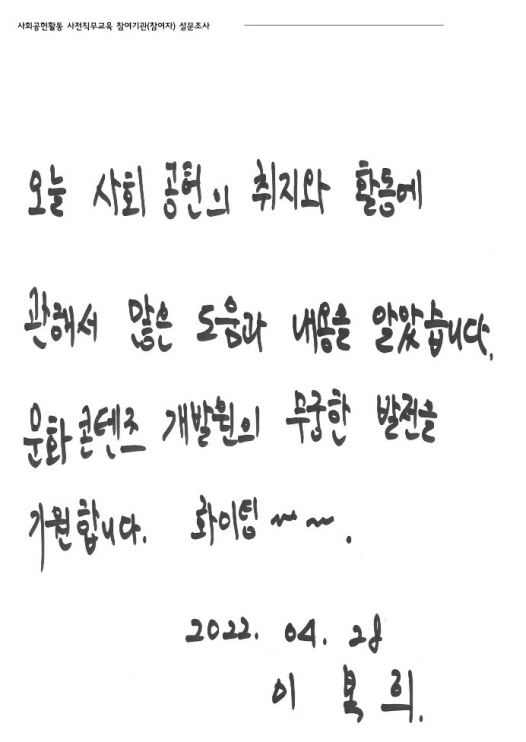 사회공헌활동 사전직무교육 참여기관(참여자) 설문조사
오늘 사회 공헌의 취지와 활동에
관해서 많은 도움과 내용을 알았습니다.
문화콘텐츠 개발원의 무궁한 발전을
기원합니다. 화이팅~~.
2022. 04. 28
이 복 희.